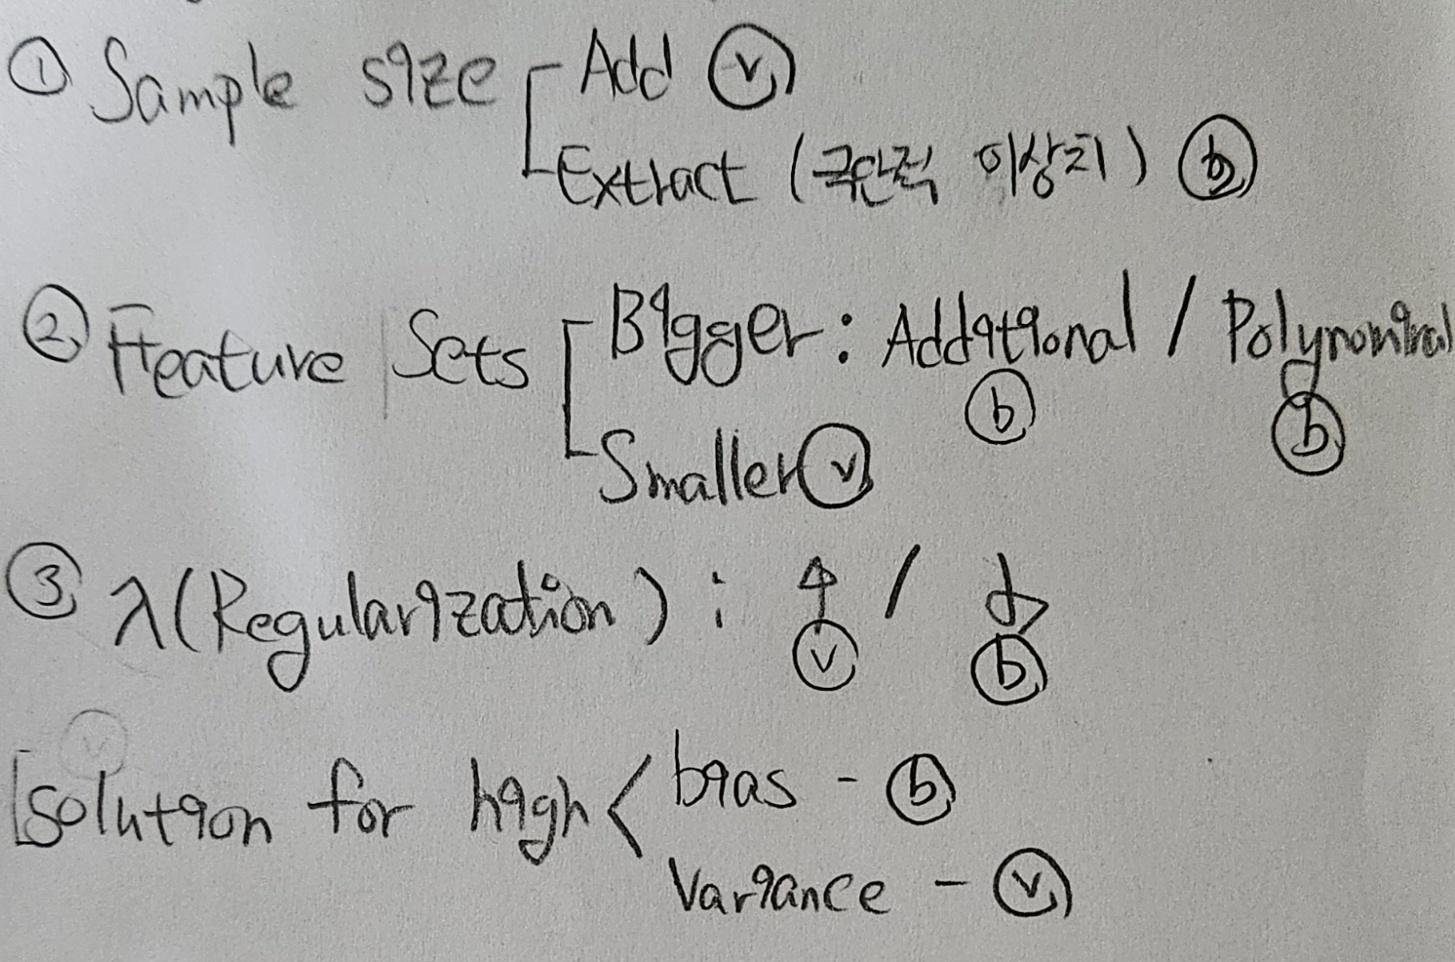 ① Sample size Add ⓥ
Extract (극단적 이상치) ⓑ
② Feature Sets Bigger: Additional / Polynomial
ⓑ ⓑ
Smaller ⓥ
③ λ(Regularization) : ↑ / ↓
ⓥ ⓑ
ⓥ
[solution for high < bias - ⓑ
Variance - ⓥ